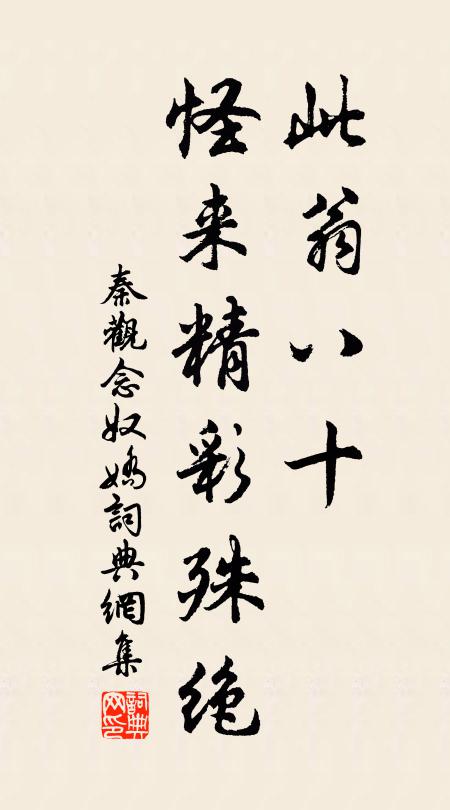 此翁八十
怪来精彩殊绝
秦觀念奴嬌詞典網集
詞典网印